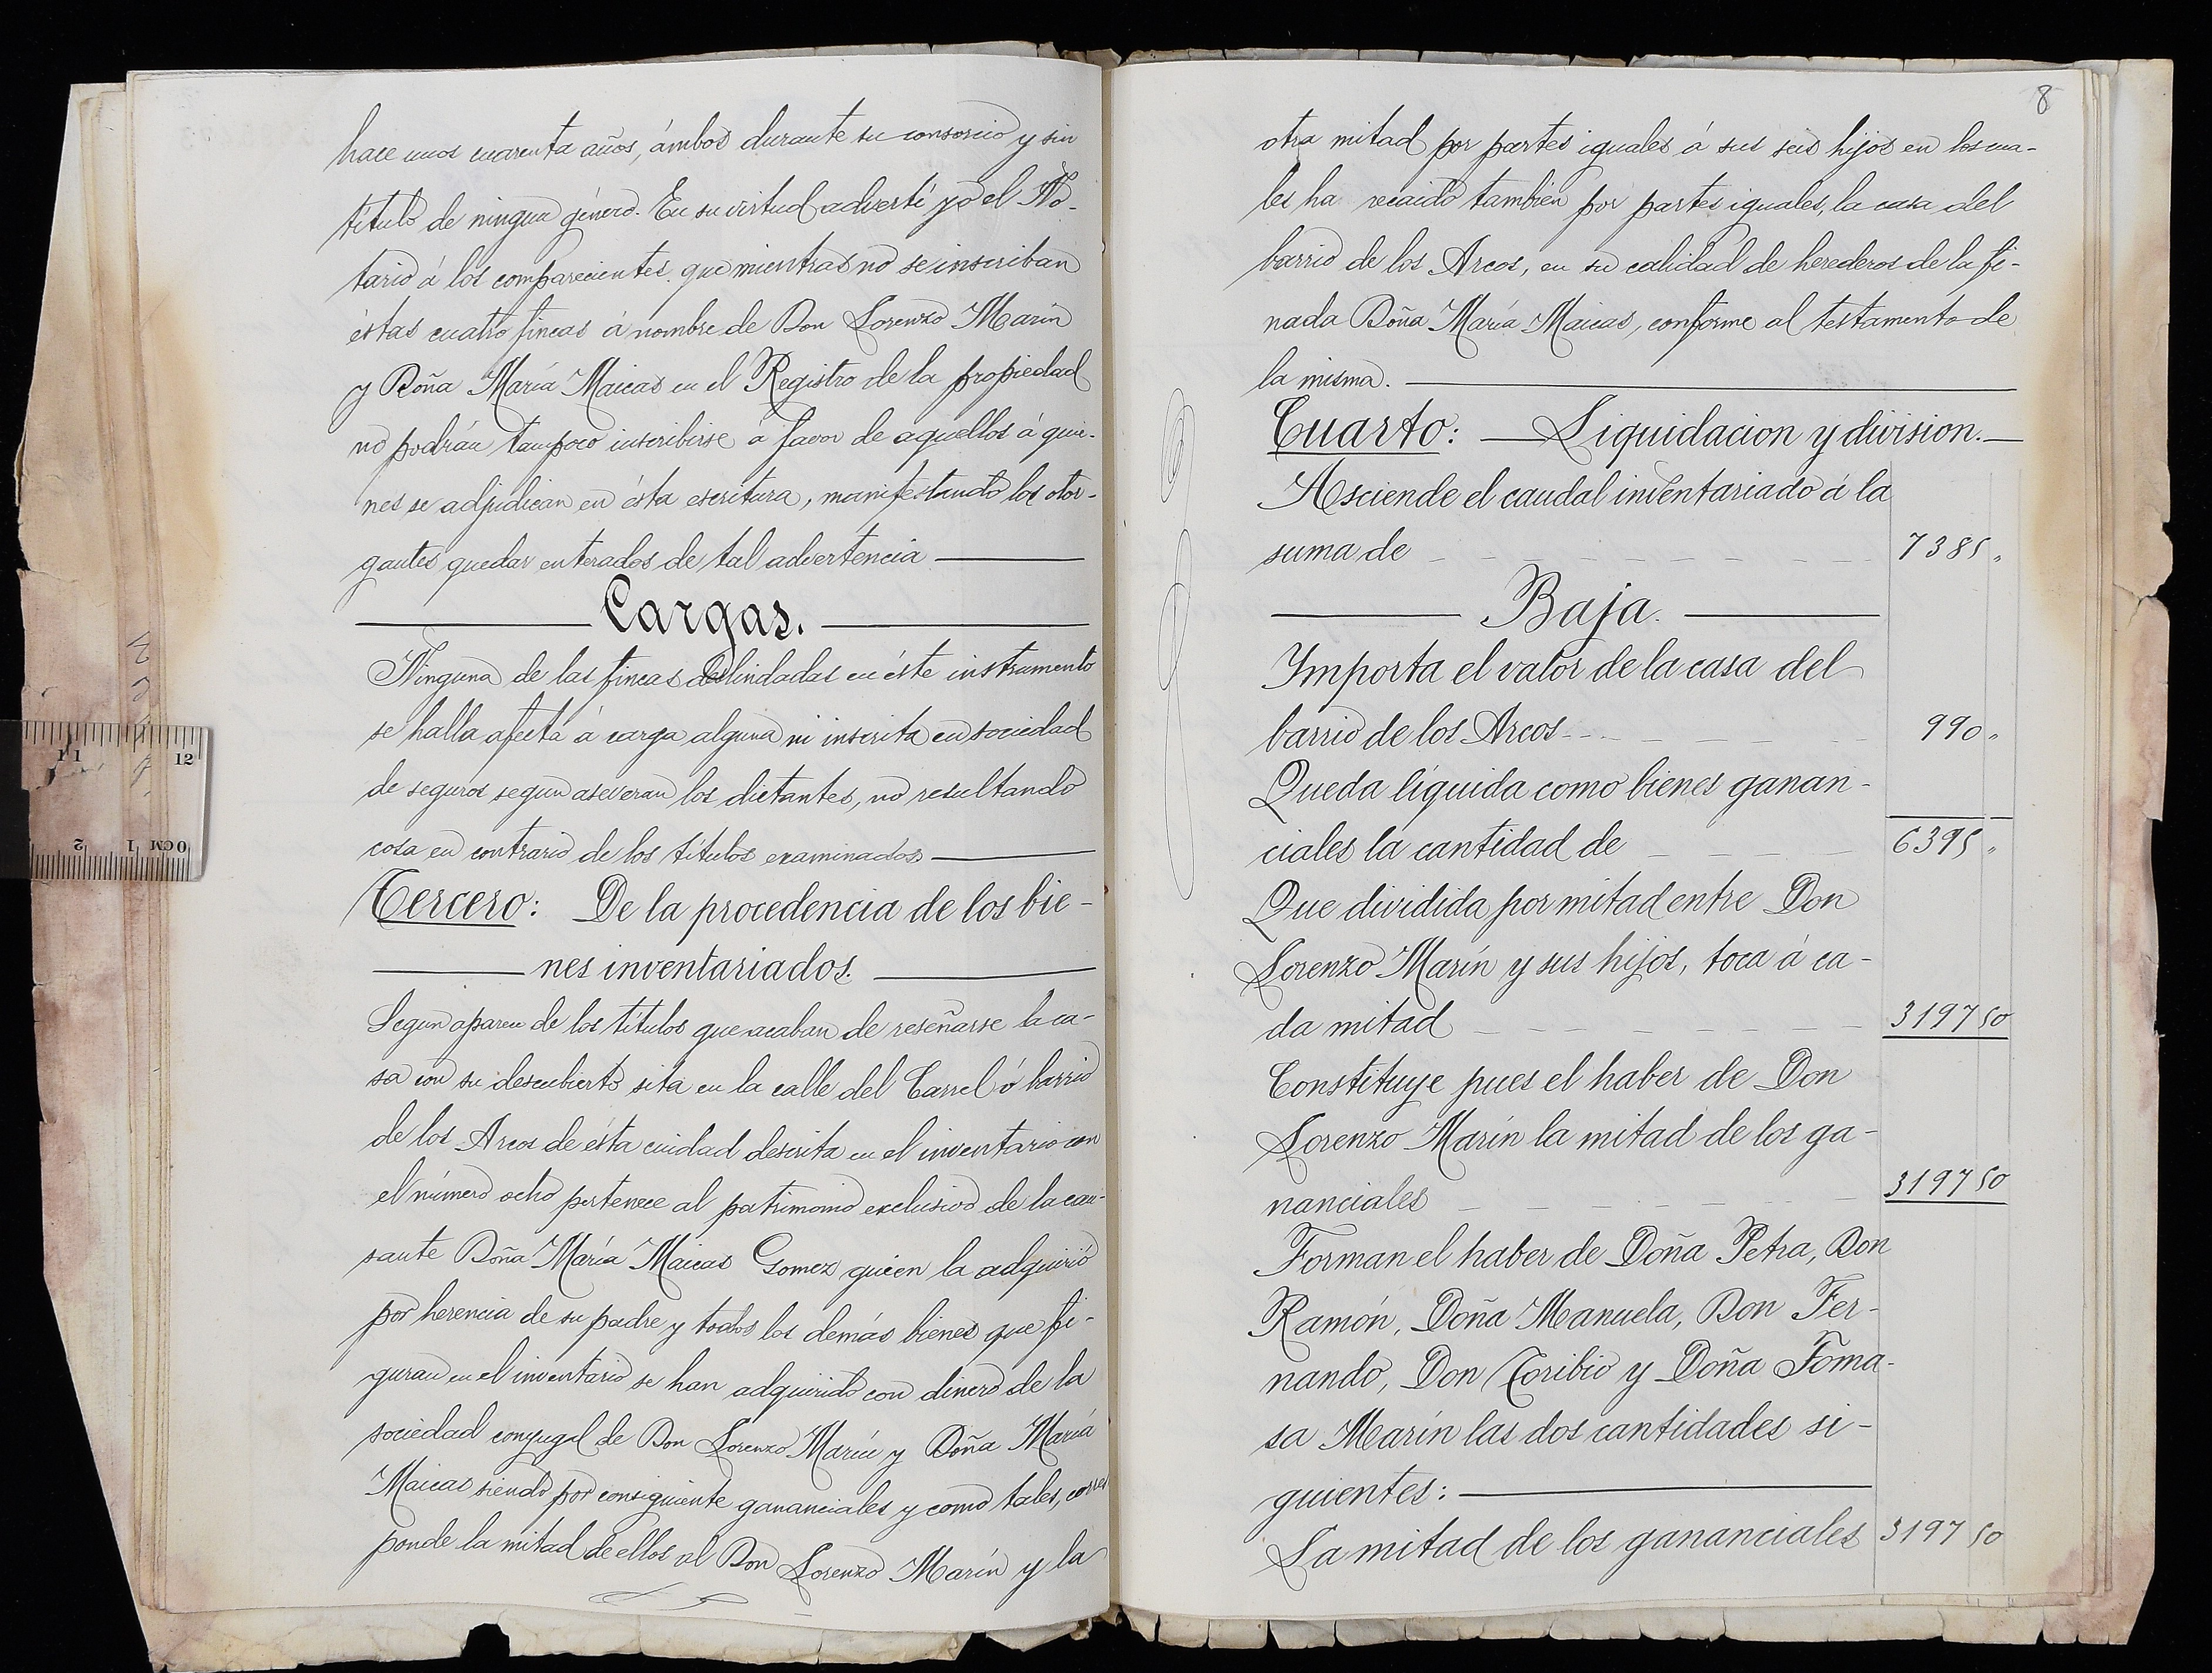 hace unos cuarenta años, ámbos durante su consorcio y sin
título de ningun género. En su virtud advertí yo el No-
tario á los comparecientes que mientras no se inscriban
éstas cuatro fincas á nombre de Don Lorenzo Marín
y Doña María Maicas en el Registro de la propiedad
no podrán tampoco inscribirse á favor de aquellos á quie-
nes se adjudican en ésta escritura, manifestando los otor-
gantes quedar enterados de tal advertencia
Cargas.
Ninguna de las fincas deslindadas en éste instrumento
se halla afecta á carga alguna ni inscrita en sociedad
de seguros segun aseveran los dictantes, no resultando
cosa en contrario de los títulos examinados
Tercero: De la procedencia de los bie-
nes inventariados.
Segun aparece de los títulos que acaban de reseñarse la ca-
sa con su descubierto sita en la calle del Carrel ó barrio
de los Arcos de ésta ciudad descrita en el inventario con
el número ocho pertenece al patrimonio exclusivo de la cau-
sante Doña María Maicas Gomez quien la adquirió
por herencia de su padre y todos los demás bienes que fi-
guran en el inventario se han adquirido con dinero de la
sociedad conyugal de Don Lorenzo Marín y Doña María
Maicas siendo por consiguiente gananciales y como tales, corres
ponde la mitad de ellos al Don Lorenzo Marín y la
8
otra mitad por partes iguales á sus seis hijos en los cua-
les ha recaido tambien por partes iguales, la casa del
barrio de los Arcos, en su calidad de herederos de la fi-
nada Doña María Maicas, conforme al testamento de
la misma.
Cuarto: Liquidacion y division.
Asciende el caudal inventariado á la
suma de 7385 "
Baja.
Ymporta el valor de la casa del
barrio de los Arcos 990 "
Queda líquida como bienes ganan-
ciales la cantidad de 6395 "
Que dividida por mitad entre Don
Lorenzo Marín y sus hijos, toca á ca-
da mitad 3197 50
Constituye pues el haber de Don
Lorenzo Marín la mitad de los ga-
nanciales 3197 50
Forman el haber de Doña Petra, Don
Ramón, Doña Manuela, Don Fer-
nando, Don Toribio y Doña Toma-
sa Marín las dos cantidades si-
guientes:
La mitad de los gananciales 3197 50